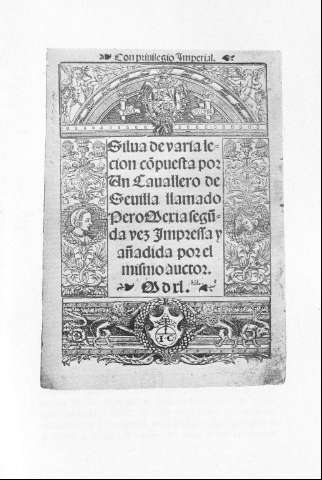 Con privilegio Imperial.
Silua de varia le-
cion cõpuesta por
Un Cauallero de
Seuilla llamado
Pero Mexia segũ-
da vez Impressa y
añadida por el
mismo auctor.
M d xl.
I C